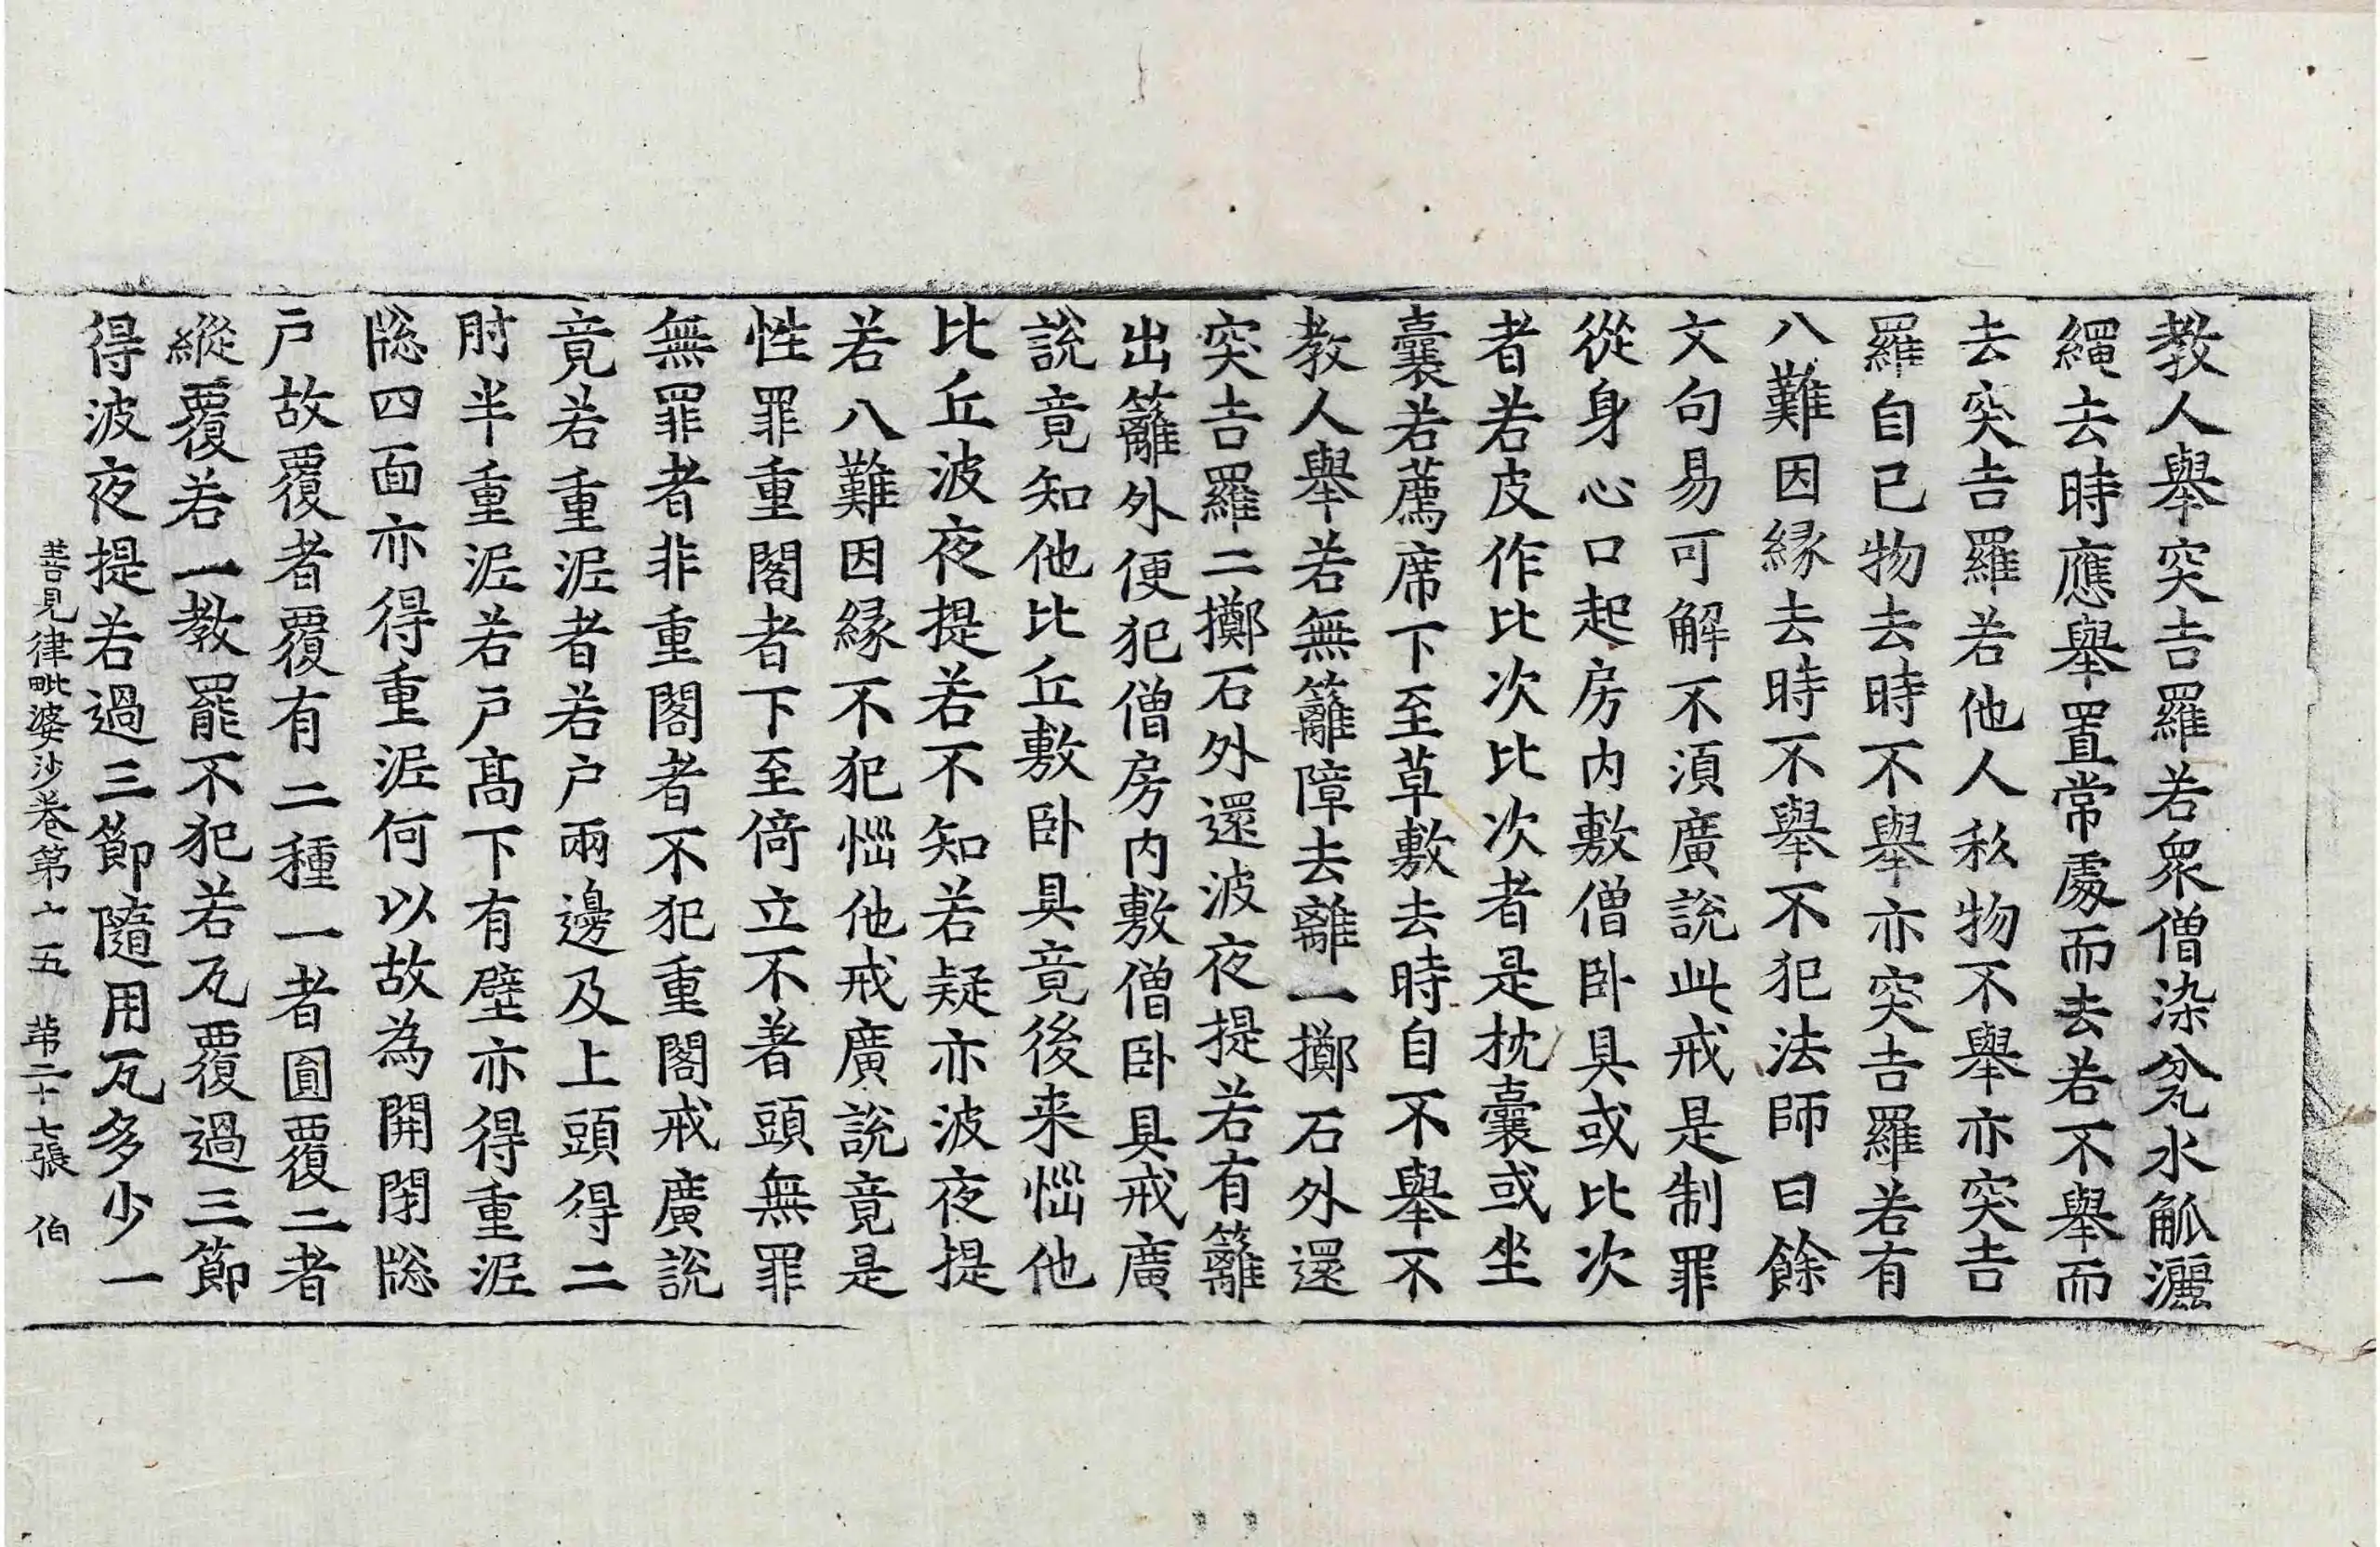 教人舉突吉羅若衆僧染瓮水觚灑
繩去時應舉置常處而去若不舉而
去突吉羅若他人私物不舉亦突吉
羅自己物去時不舉亦突吉羅若有
八難因緣去時不舉不犯法師曰餘
文句易可解不須廣說此戒是制罪
從身心口起房内敷僧卧具或比次
者若皮作比次比次者是枕囊或坐
囊若薦席下至草敷去時自不舉不
教人舉若無籬障去離一擲石外還
突吉羅二擲石外還波夜提若有籬
出籬外便犯僧房内敷僧卧具戒廣
說竟知他比丘敷卧具竟後来惱他
比丘波夜提若不知若疑亦波夜提
若八難因緣不犯惱他戒廣說竟是
性罪重閣者下至倚立不著頭無罪
無罪者非重閣者不犯重閣戒廣說
竟若重泥者若户兩邊及上頭得二
肘半重泥若户高下有壁亦得重泥
牕四面亦得重泥何以故為開閇牕
户故覆者覆有二種一者圓覆二者
縱覆若一教罷不犯若瓦覆過三節
得波夜提若過三節隨用瓦多少一
善見律毗婆沙卷第十五　苐二十七張　伯